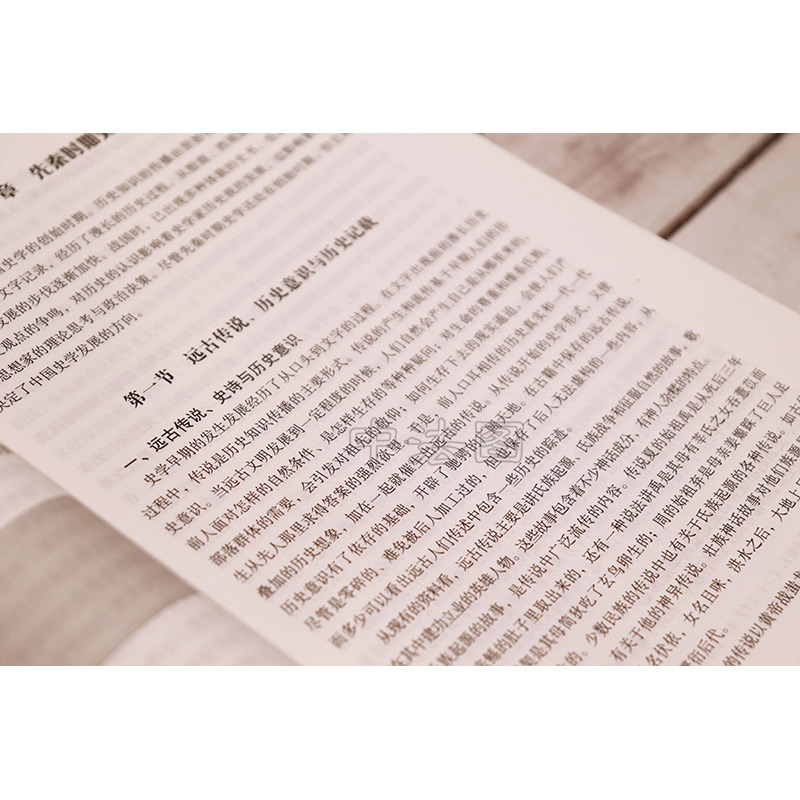 章 先秦时期
史学的创始时期。历史知识的传播
文字记录，经历了漫长的历史过程。从殷商、西
发展的步伐逐渐加快。战国时，已出现多种体裁的史书，
观点的争鸣，对历史的认识影响着史学家历史观的发展，
思想家的理论思考与政治决策。尽管先秦时期史学还处在初创阶段，但
定了中国史学发展的方向。
第一节 远古传说、历史意识与历史记载
一、远古传说、史诗与历史意识
史学早期的发生发展经历了从口头到文字的过程。在文字出现前的漫长历史
过程中，传说是历史知识传播的主要形式。传说的产生和流传基于早期人们的历
史意识。当远古文明发展到一定程度的时候，人们自然会产生自己是从哪里来的，
前人面对怎样的自然条件、是怎样生存的等种种疑问；对生命的尊重和维系氏族、
部落群体的需要，会引发对祖先的敬仰；如何生存下去的现实渠道，会使人们产
生从先人那里求得答案的强烈欲望。于是，前人口耳相传的历史真实和一代一代
叠加的历史想象，加在一起就催生出远古的传说。从传说开始的史学形式，又使
历史意识有了依存的基础，开辟了驰骋的空间和天地。在古籍中保存的远古传说，
尽管是零碎的、难免被后人加工过的，但却保存了后人无法虚构的一些内容，从
而多少可以看出远古人们传述中包含一些历史的踪迹。
从现有的资料看，远古传说主要是讲氏族起源、氏族战争和征服自然的故事，歌
其中建功立业的英雄人物。这些故事包含着不少神话成分，有神人杂糅的特点。
族起源的故事，是传说中广泛流传的内容。传说夏的始祖禹是从死后三年
鲧的肚子里取出来的，还有一种说法讲禹是其母有莘氏之女吞薏苡而
契是其母简狄吃了玄鸟卵生的；周的始祖弃是母亲姜嫄踩了巨人足
的。少数民族的传说中也有关于氏族起源的各种传说。如古
有关于他的种异传说。壮族神话故事对他们族源
名伏依，女名且咪，洪水之后，大地上
衍后代。
的传说以黄帝战蚩尤
中法图